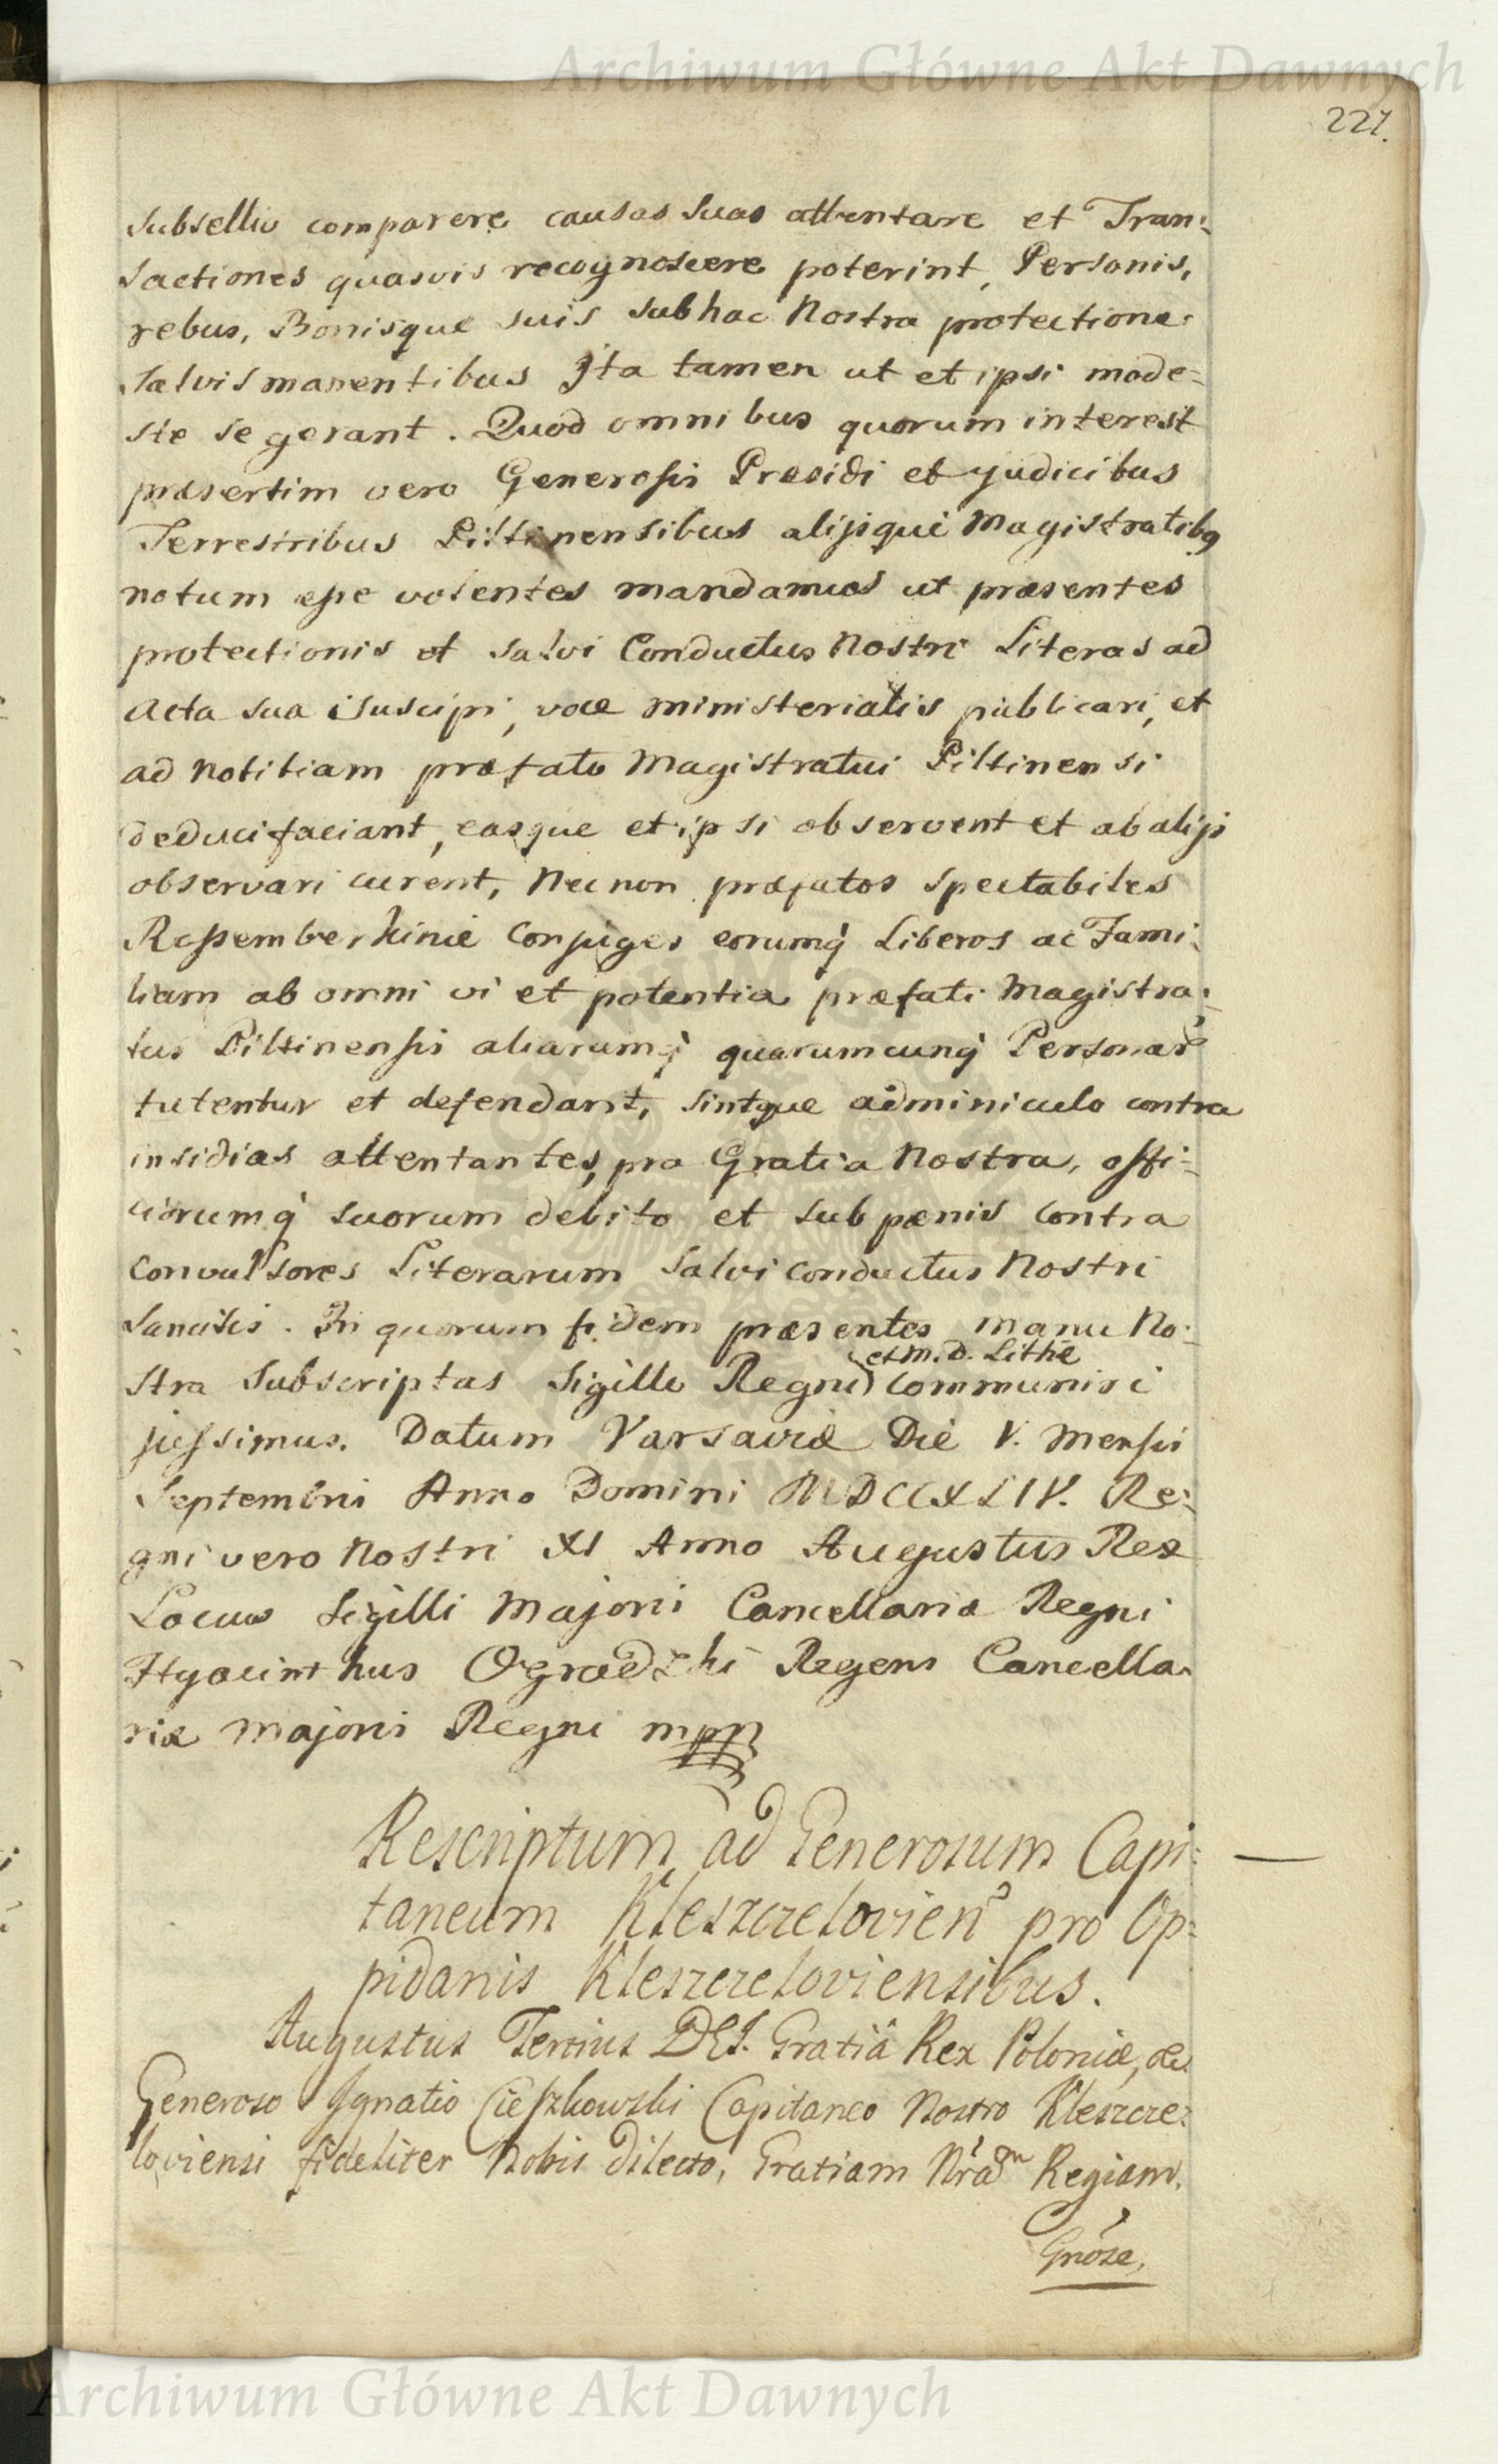 Archiwum Główne Akt Dawnych
227.
Subsellio comparere causas suas attentare et Tran=
sactiones quasvis recognoscere poterint, Personis,
rebus, Bonisque suis sub hac Nostra protectione
salvis manentibus Ita tamen ut et ipsi mode=
ste se gerant. Quod omnibus quorum interest
præsertim vero Generosis Præsidi et Judicibus
Terrestribus Piltinensibus alijsque Magistratibq
notum esse volentes mandamus ut præsentes
protectionis et salvi Conductus Nostri Literas ad
Acta sua suscipi, voce ministerialis publicari, et
ad notitiam præfato Magistratui Piltinensi
deduci faciant, easque et ipsi observent et ab alijs
observari curent, Nec non præfatos Spectabiles
Conjuges eorumq Liberos ac Fami=
liam ab omni vi et potentia præfati Magistra=
tus Piltinensis aliarumq quarumcunq Personar
tutentur et defendant, sintque adminiculo contra
insidias attentantes, pro Gratia Nostra, offi=
ciorumq suorum debito et sub pænis contra
convulsores Literarum salvi conductus Nostri
sancitis. In quorum fidem præsentes manu No=
et M. D. Lithæ
stra subscriptas Sigillo Regni communiri
jussimus. Datum Varsaviæ Die V. Mensis
Septembris Anno Domini MDCCXLIV. Re=
gni vero Nostri XI Anno Augustus Rex
Locus Sigilli Majoris Cancellariæ Regni
Hyacinthus Ogrodzki Regens Cancella=
riæ Majoris Regni mpp
Rescriptum ad Generosum Capi=
taneum Kleszczelovien pro Op=
pidanis Kleszczeloviensibus.
Augustus Tertius DEI. Gratiâ Rex Poloniæ, &c
Generoso Ignatio Cieszkowski Capitaneo Nostro Kleszcze=
loviensi fideliter Nobis dilecto, Gratiam Nrãm Regiam.
Gnóse,
ARCHIWUM GŁÓWNE AKT DAWNYCH
Archiwum Główne Akt Dawnych